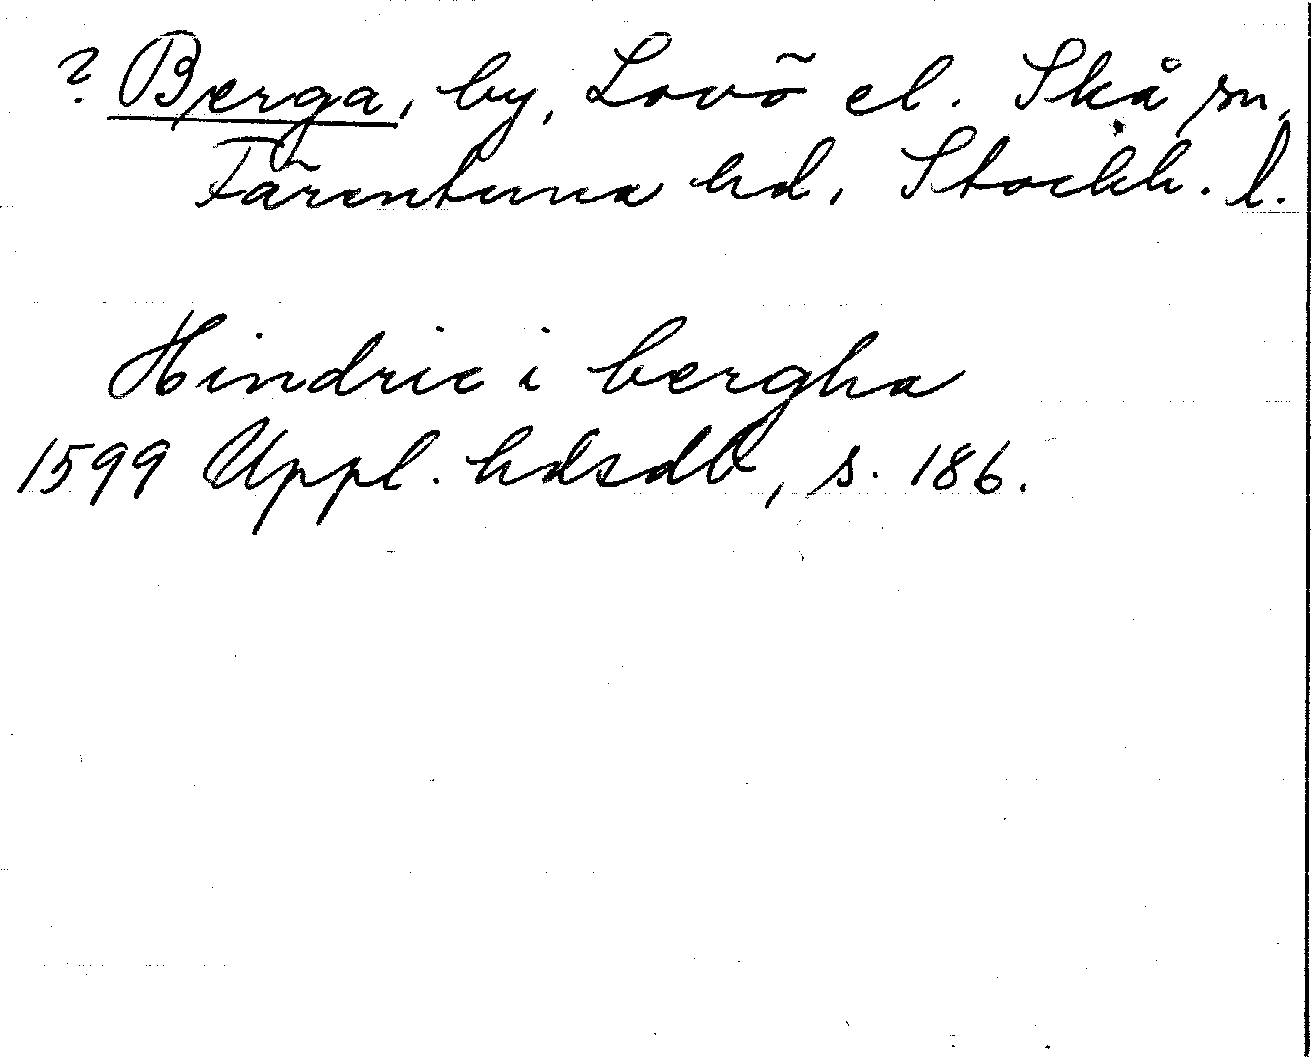 ? Berga, by, Lovö el. Skå sn,
Färentuna hd, Stockh. l.
Hindric i bergha
1599 Uppl. hdsdb, s. 186.